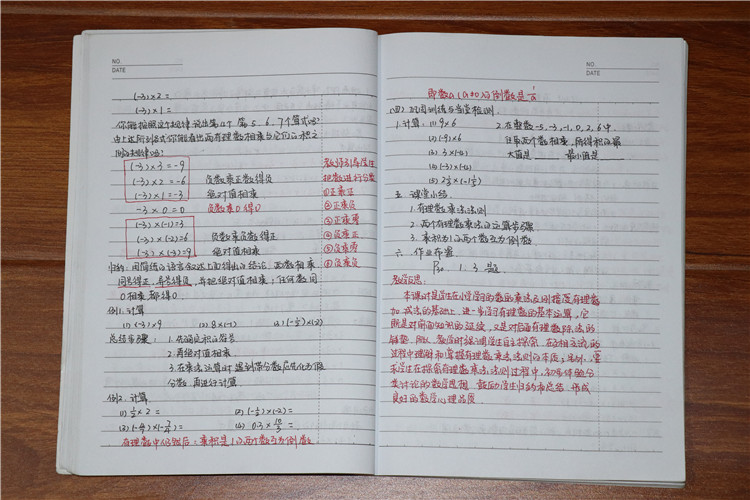 NO.
DATE
(-3)×2=
(-3)×1=
你能按照这个规律说出第4个 第5、6、7个算式吗?
由上述所列各式你能看出两有理数相乘与它们的积之
间的规律吗?
(-3)×3=-9
(-3)×2=-6 负数乘正数得负
(-3)×1=-3 绝对值相乘
-3×0=0 负数乘0得0
(-3)×(-1)=3
(-3)×(-2)=6 负数乘负数得正
(-3)×(-3)=9 绝对值相乘
教师引导学生
把数进行分类
①正乘正
②正乘负
③正乘零
④负乘正
⑤负乘零
⑥负乘负
归纳: 用简练的语言叙述上面得出的结论. 两数相乘
同号得正,异号得负,并把绝对值相乘;任何数同
0相乘都得0
例1. 计算
(1) (-3)×9 (2) 8×(-1) (3) (-1/2)×(-2)
总结步骤: 1. 先确定积的符号
2. 再绝对值相乘
3. 在乘法运算时 遇到带分数应先化为假
分数,再进行计算.
例2. 计算
(1) 1/2×2= (2) (-1/2)×(-2)=
(4) 0.3×10/3=
有理数中仍然后:乘积是1的两个数互为倒数.
NO.
DATE
即数a(a≠0)的倒数是1/a
(四) 巩固训练与当堂检测.
1. 计算: (1) 9×6 2. 在整数-5,-3,-1,0,2,6中
(2) (-9)×6 任取两个数相乘,所得积的最
(3) 3×(-4) 大值是 最小值是
(4) (-3)×(-4)
五. 课堂小结.
1. 有理数乘法法则
2. 两个有理数乘法的运算步骤
3. 乘积为1的两个数互为倒数
六. 作业布置
P30 1. 3题
教学反思:
本课时是学生在小学学习的数的乘法及刚接受有理数
加减法的基础上,进一步学习有理数的基本运算,它
既是对前面知识的延续,又是对后面有理数除法的
铺垫. 所以,教学时强调学生自主探索,在的相交流的
过程中理解和掌握有理数乘法法则的本质;另外,要
求学生在探索有理数乘法法则过程中,初步体验分
类讨论的数学思想,鼓励学生归纳和总结,形成
良好的数学心理品质.